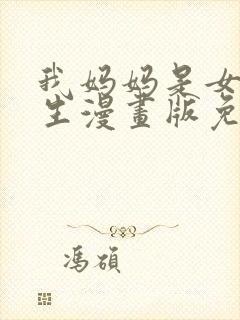 我妈妈是女
生漫畫版免
冯硕